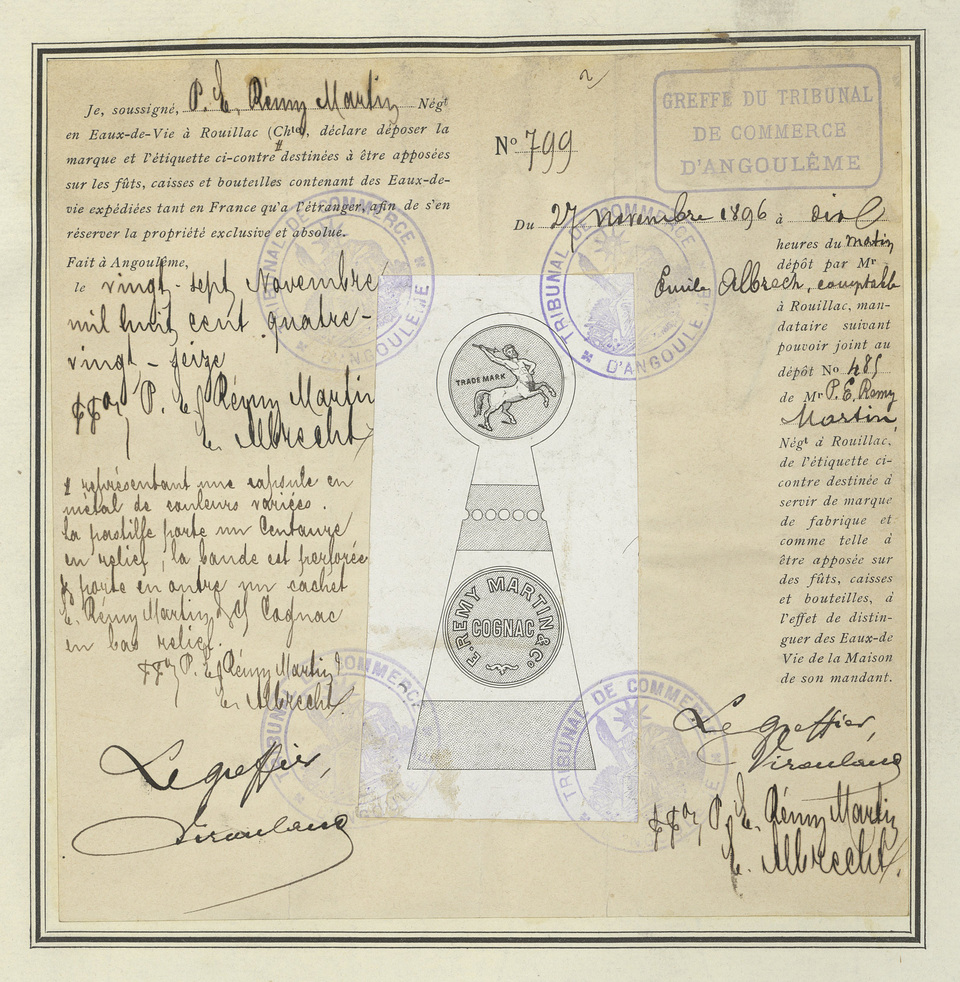 Je, soussigné, P. E. Rémy Martin Négt
en Eaux-de-Vie à Rouillac (Chte), déclare déposer la
marque et l'étiquette ci-contre # destinées à être apposées
sur les fûts, caisses et bouteilles contenant des Eaux-de-
vie expédiées tant en France qu'a l'étranger, afin de s'en
réserver la propriété exclusive et absolue.
Fait à Angoulême,
le vingt-sept Novembre
mil huit cent quatre-
vingt-seize
P. E. Rémy Martin
E. Albrecht
# représentant une capsule en
métal de couleurs variées.
La pastille porte un Centaure
en relief, la bande est perforée
& porte en outre un cachet
E. Rémy Martin & Co Cognac
en bas relief.
P. E. Rémy Martin
E. Albrecht
Le greffier,
No 799
GREFFE DU TRIBUNAL
DE COMMERCE
D'ANGOULÊME
Du 27 Novembre 1896 à dix
heures du matin
dépôt par Mr
Emile Albrech, comptable
à Rouillac, man-
dataire suivant
pouvoir joint au
dépôt No 485
de Mr P. E. Remy
Martin,
Négt à Rouillac,
de l'étiquette ci-
contre destinée à
servir de marque
de fabrique et
comme telle à
être apposée sur
des fûts, caisses
et bouteilles, à
l'effet de distin-
guer des Eaux-de
Vie de la Maison
de son mandant.
Le greffier,
P. E. Rémy Martin
E. Albrecht
TRADE MARK
E. REMY MARTIN & Co.
COGNAC
TRIBUNAL DE COMMERCE D'ANGOULÊME
TRIBUNAL DE COMMERCE D'ANGOULÊME
TRIBUNAL DE COMMERCE
TRIBUNAL DE COMMERCE